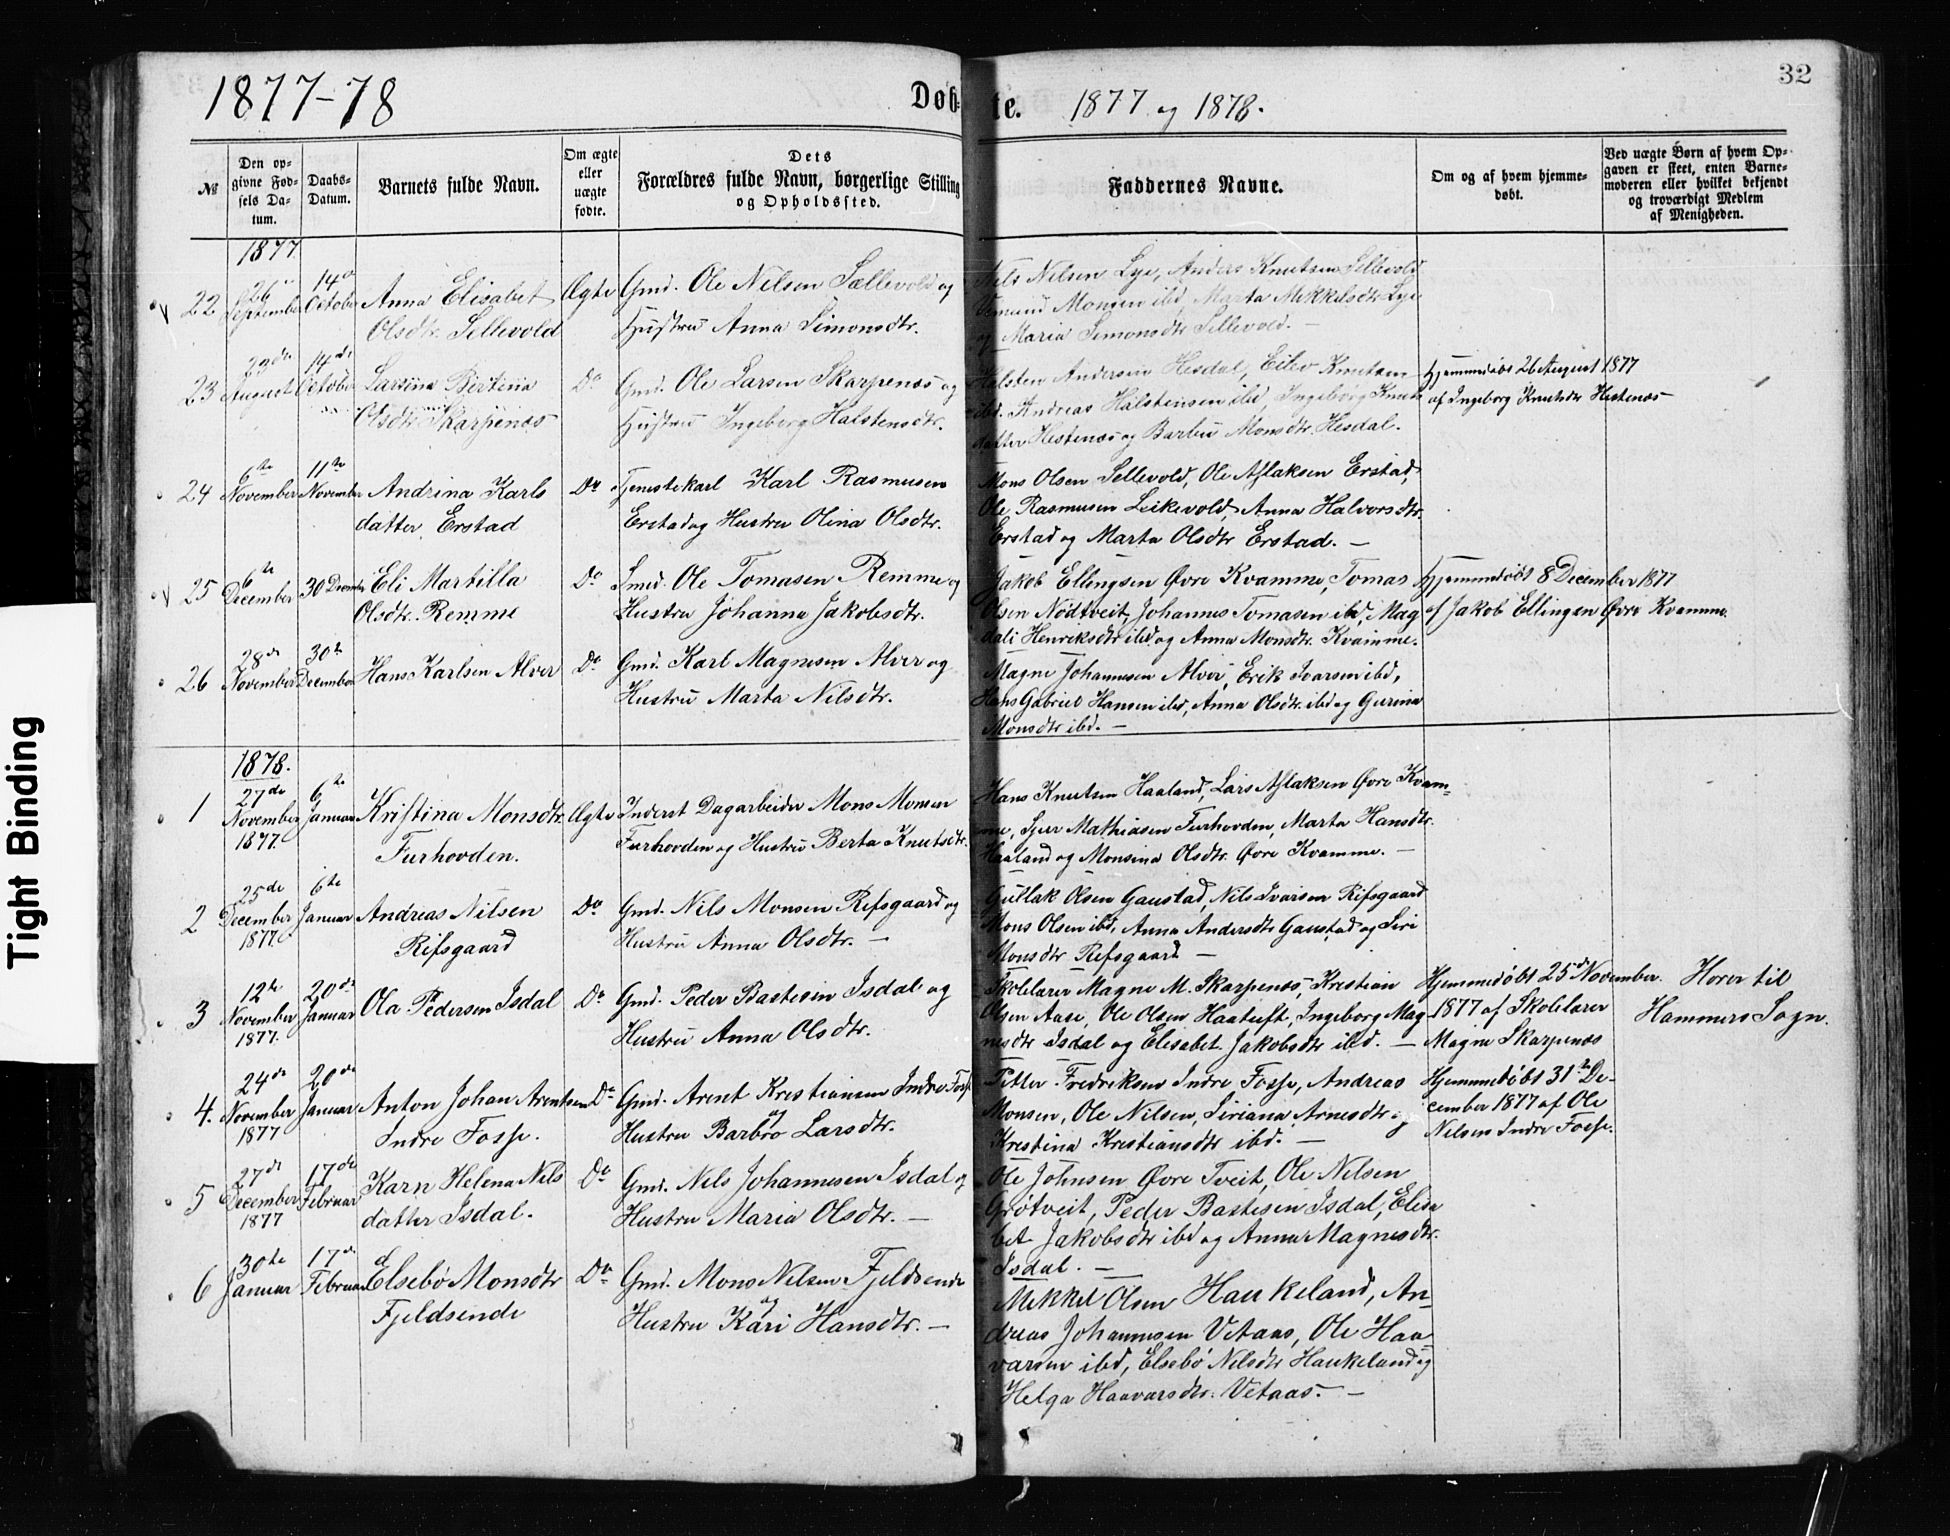 1877-78
Døb-
te.
1877 og 1878.
32
Tight Binding
№
Den op-
givne Fød-
sels Da-
tum.
Daabs-
Datum.
Barnets fulde Navn.
Om ægte
eller
uægte
fødte.
Dets
Forældres fulde Navn, borgerlige Stilling
og Opholdssted.
Faddernes Navne.
Om og af hvem hjemme-
døbt.
Ved uægte Børn af hvem Op-
gaven er skeet, enten Barne-
moderen eller hvilket bekjendt
og troværdigt Medlem
af Menigheden.
1877
22
26
September
14de
October
Anna Elisabet
Olsdtr. Sellevold
Ægte
Gmd. Ole Nilsen Sællevold og
Hustru Anna Simonsdtr.
Nils Nilsen Lye, Anders Knutsen Sellevold
Monsen ibd, Marta Mikkelsdtr Lye
og Maria Simonsdtr Sellevold. —
23
23de
August
14de
October
Larsina Bertina
Olsdtr Skarpenæs
Do
Gmd. Ole Larsen Skarpenæs og
Hustru Ingeborg Halstensdtr.
Halsten Andersen Hesdal, Eilev Knutsen
ibd. Andreas Halstensen ibd, Ingeborg Knuts
datter Hestenæs og Barbru Monsdtr. Hesdal.
Hjemmedøbt 26 August 1877
af Ingeborg Knutsdtr Hestenæs
24
6te
November
11te
November
Andrina Karls
datter Erstad
Do
Tjenestekarl Karl Rasmusen
Erstad og Hustru Olina Olsdtr.
Mons Olsen Sellevold, Ole Aslaksen Erstad,
Ole Rasmusen Leikevold, Anna Halvorsdtr.
Erstad og Marta Olsdtr Erstad. —
25
6te
December
30 December
Eli Martilla
Olsdtr. Remme
Do
Smed. Ole Tomasen Remme og
Hustru Johanna Jakobsdtr.
Jakob Ellingsen Øvre Kvamme, Tomas
Olsen Nødtveit, Johannes Tomasen ibd, Mag
dali Henriksdtr ibd og Anna Monsdtr. Kvamme.
Hjemmedøbt 8 December 1877
af Jakob Ellingsen Øvre Kvamme.
26
28de
November
30te
December
Hans Karlsen Alver
Do
Gmd. Karl Magnesen Alver og
Hustru Marta Nilsdtr.
Magne Johannesen Alver, Erik Ivarsen ibd,
Hans Gabriel Hansen ibd, Anna Olsdtr. ibd og Gurina
Monsdtr ibd. —
1878.
1
27de
November
1877.
6te
Januar
Kristina Monsdtr
Furhovden.
Ægte
Inderst Dagarbeider Mons Monsen
Furhovden og Hustru Berta Knutsdtr.
Hans Knutsen Haaland, Lars Aslaksen Øvre Kvam-
me, Sjur Mathiasen Furhovden, Marta Hansdtr.
Haaland og Monsina Olsdtr. Øvre Kvamme. —
2
25de
December
1877.
6te
Januar
Andreas Nilsen
Rifsgaard
Do
Gmd. Nils Monsen Refsgaard og
Hustru Anna Olsdtr. —
Gullak Olsen Gaustad, Nils Ivarsen Rifsgaard
Mons Olsen ibd, Anna Andersdtr Gaustad og Siri
Monsdtr Refsgaard —
3
12te
November
1877.
20de
Januar
Ola Pedersen Isdal
Do
Gmd. Peder Bastesen Isdal og
Hustru Anna Olsdtr.
Skolelærer Magne M. Skarpenæs, Kristian
Olsen Aase, Ole Olsen Haatuft, Ingeborg Mag
nesdtr Isdal og Elisabet Jakobsdtr ibd. —
Hjemmedøbt 25de November.
1877 af Skolelærer
Magne Skarpenæs
Hører til
Hammers Sogn.
4.
24de
November
1877
20de
Januar
Anton Johan Arentsen
Indre Fosse.
Do
Gmd. Arent Kristiansen Indre Fosse
og
Hustru Barbro Larsdtr.
Petter Fredriksen Indre Fosse, Andreas
Monsen, Ole Nilsen, Siriana Arnesdtr og
Krestina Kristiansdtr ibd. —
Hjemmedøbt 31te De-
cember 1877 af Ole
Nilsen Indre Fosse.
5
27de
December
1877
17de
Februar
Karn Helena Nils
datter Isdal.
Do
Gmd. Nels Johannesen Isdal og
Hustru Maria Olsdtr. —
Ole Johnsen Øvre Tveit, Ole Nilsen
Grøtveit, Peder Bastesen Isdal, Elisa
bet Jakobsdtr ibd og Anna Magnesdtr.
Isdal. —
6
30te
Januar
17de
Februar
Elsebø Monsdtr
Fjeldsende
Do
Gmd. Mons Nilsen Fjeldsende
og
Hustru Kari Hansdtr. —
Mikkel Olsen Haukeland, An-
dreas Johannesen Vetaas, Ole Haa-
varsen ibd, Elsebø Nilsdtr Haukeland og
Helga Haavarsdtr. Vetaas. —